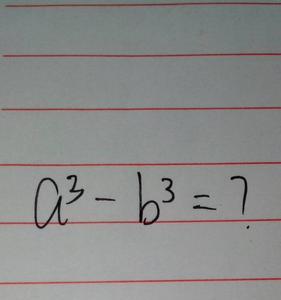 a³ - b³ = ?